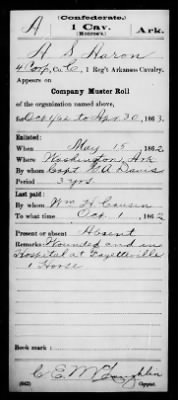 (Confederate.)
A 1 Cav. Ark.
(Monroe's.)
A S Aaron
4 Corp, Co. C, 1 Reg't Arkansas Cavalry.
Appears on
Company Muster Roll
of the organization named above,
for Oct 1/62 to Apr 30, 1863.
Enlisted:
When May 15 1862
Where Washington, Ark
By whom Capt E A Davis
Period 3 yrs
Last paid:
By whom Wm H Cousin
To what time Oct 1, 1862
Present or absent Absent
Remarks: Wounded and in
Hospital at Fayetteville
1 Horse
Book mark:
C. E. McLaughlin
(642) Copyist.